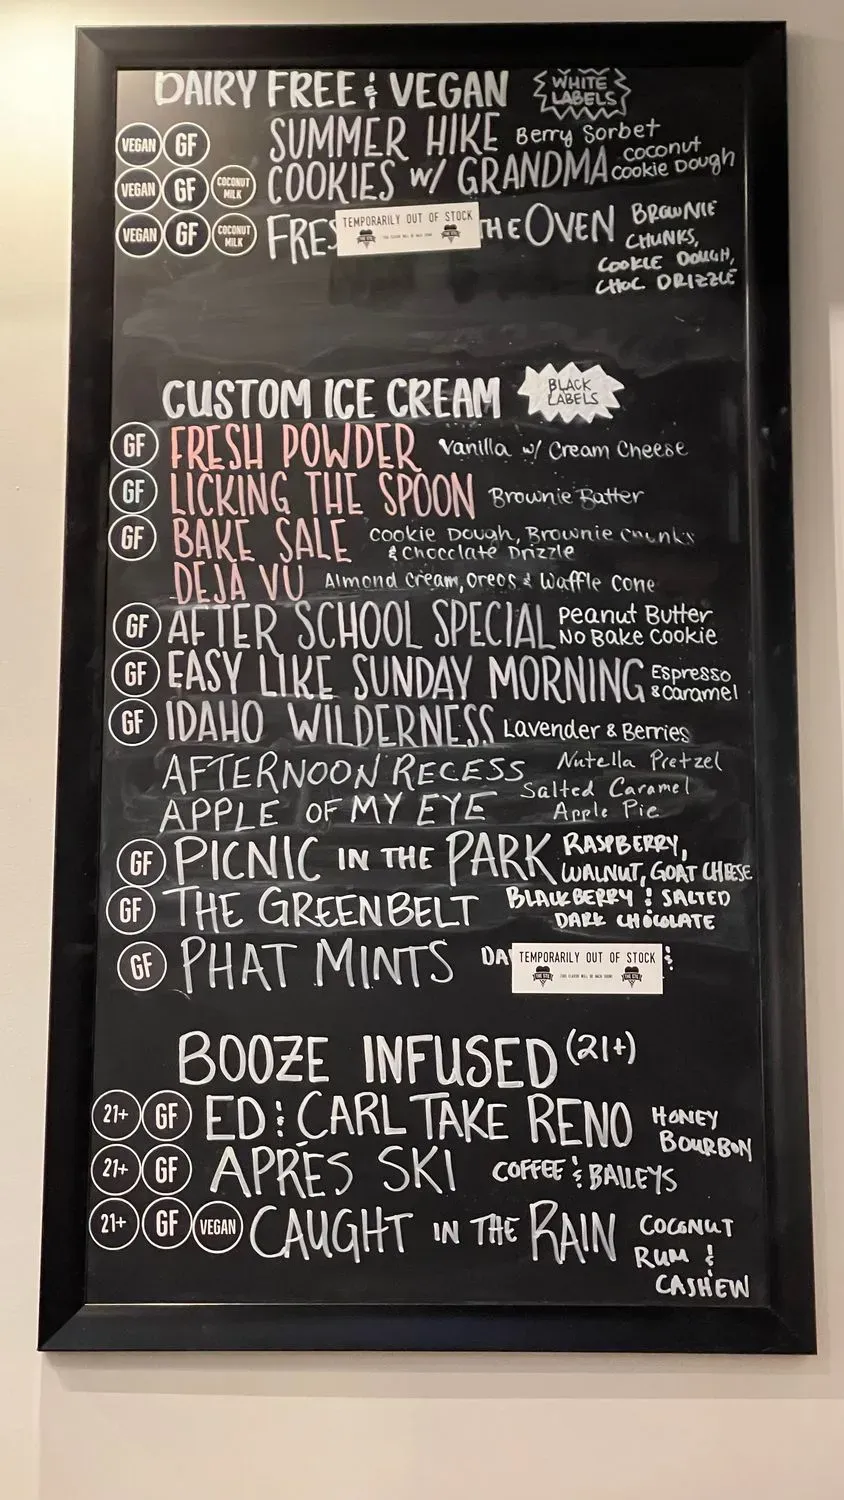 DAIRY FREE & VEGAN WHITE LABELS
VEGAN GF SUMMER HIKE Berry Sorbet
VEGAN GF COCONUT MILK COOKIES W/ GRANDMA Coconut Cookie Dough
VEGAN GF COCONUT MILK FRES TEMPORARILY OUT OF STOCK THE OVEN BROWNIE CHUNKS, COOKIE DOUGH, CHOC DRIZZLE
CUSTOM ICE CREAM BLACK LABELS
GF FRESH POWDER Vanilla w/ Cream Cheese
GF LICKING THE SPOON Brownie Batter
GF BAKE SALE Cookie Dough, Brownie Chunks & Chocolate Drizzle
DEJA VU Almond Cream, Oreos & Waffle Cone
GF AFTER SCHOOL SPECIAL Peanut Butter No Bake Cookie
GF EASY LIKE SUNDAY MORNING Espresso & Caramel
GF IDAHO WILDERNESS Lavender & Berries
AFTERNOON RECESS Nutella Pretzel
APPLE OF MY EYE Salted Caramel Apple Pie
GF PICNIC IN THE PARK RASPBERRY, WALNUT, GOAT CHEESE
GF THE GREENBELT BLACKBERRY & SALTED DARK CHOCOLATE
GF PHAT MINTS DA TEMPORARILY OUT OF STOCK &
BOOZE INFUSED (21+)
21+ GF ED & CARL TAKE RENO HONEY BOURBON
21+ GF APRÉS SKI COFFEE & BAILEYS
21+ GF VEGAN CAUGHT IN THE RAIN COCONUT RUM & CASHEW